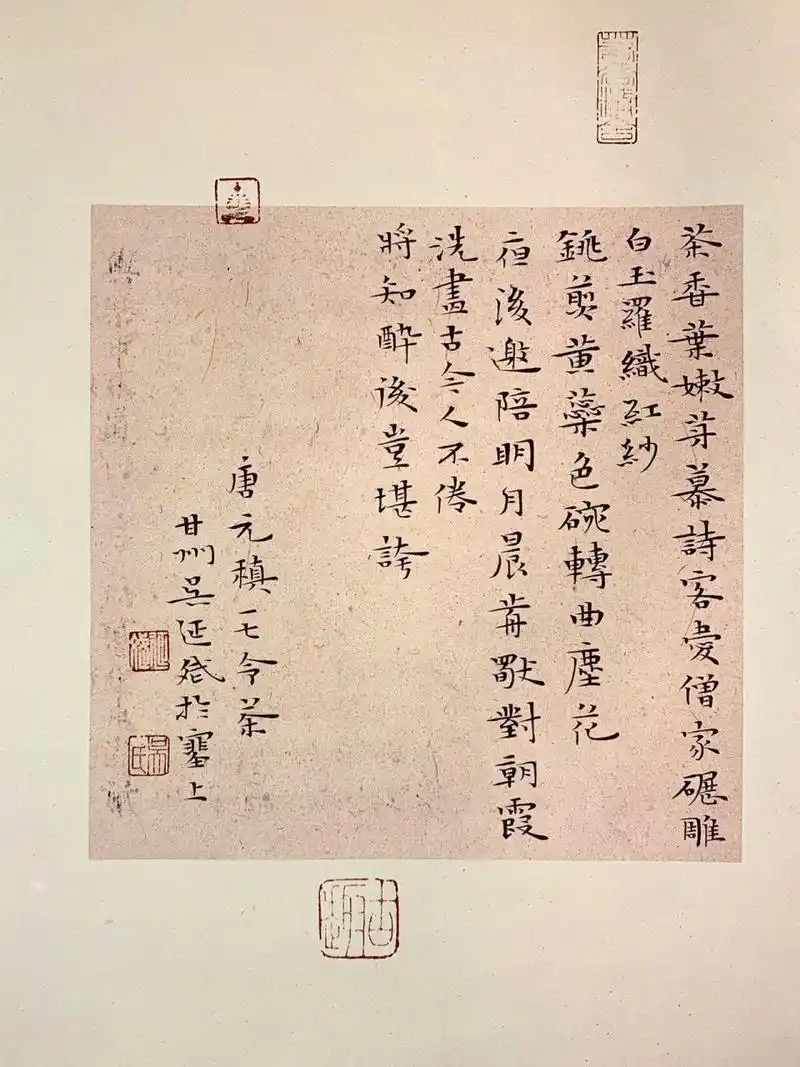 茶香葉嫩芽慕詩客愛僧家碾雕
白玉羅織紅紗
銚煎黃蘂色碗轉曲塵花
夜後邀陪明月晨前獨對朝霞
洗盡古今人不倦
將知醉後豈堪誇
唐元稹一七令茶
甘州吳延於塞上
吳氏